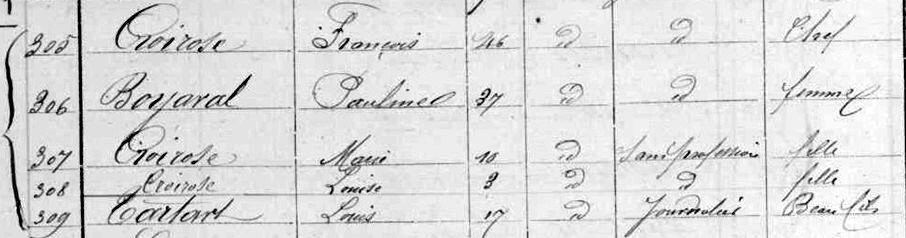 305 Croirose François 46 d d Chef
306 Boyaval Pauline 37 d d femme
307 Croirose Marie 10 d sans profession fille
308 Croirose Louise 3 d d fille
309 Tartart Louis 17 d Journalier Beau fils